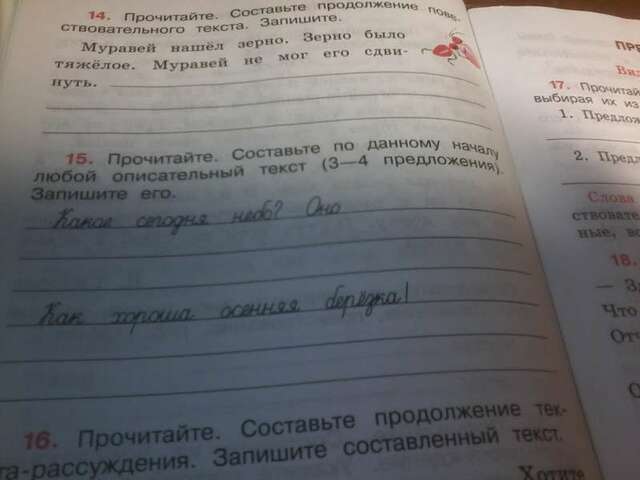 14. Прочитайте. Составьте продолжение пове-
ствовательного текста. Запишите.
Муравей нашёл зерно. Зерно было
тяжёлое. Муравей не мог его сдви-
нуть.
15. Прочитайте. Составьте по данному началу
любой описательный текст (3—4 предложения).
Запишите его.
Какое сегодня небо? Оно
Как хороша осенняя берёзка!
16. Прочитайте. Составьте продолжение тек-
ста-рассуждения. Запишите составленный текст.
Хотите
17. Прочитай
выбирая их из
1. Предлож
2. Пред
Слова
ствовате
ные, во
18.
— За
Что
От